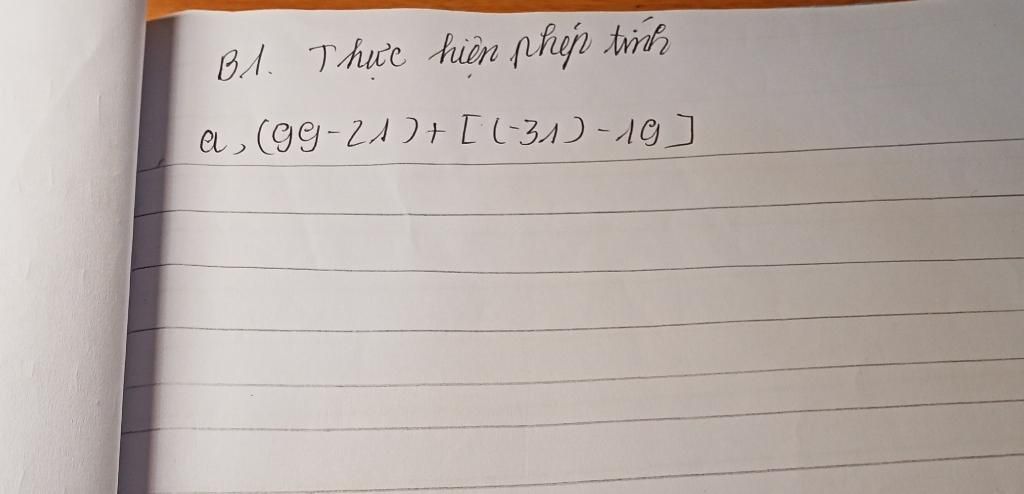 B1. Thực hiện phép tính
a, (99-21)+[(-31)-19]